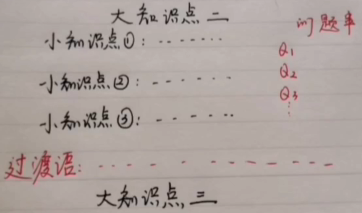 大知识点二
问题
小知识点①：·······
Q1
小知识点②：·······
Q2
Q3
小知识点③：·······
过渡语：··············
大知识点三